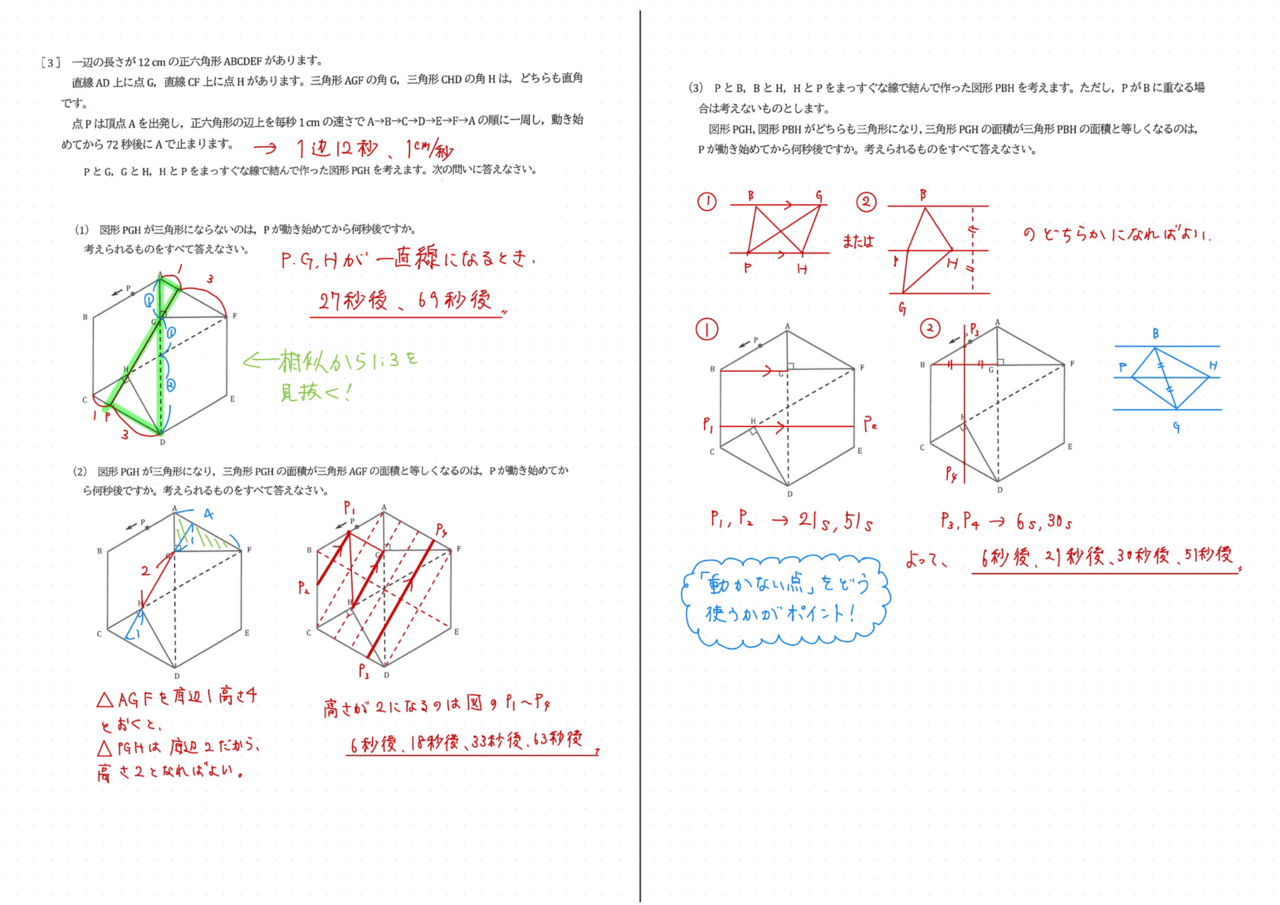 [3] 一辺の長さが 12 cm の正六角形 ABCDEF があります。
直線 AD 上に点 G，直線 CF 上に点 H があります。三角形 AGF の角 G，三角形 CHD の角 H は，どちらも直角
です。
点 P は頂点 A を出発し，正六角形の辺上を毎秒 1 cm の速さで A→B→C→D→E→F→A の順に一周し，動き始
めてから 72 秒後に A で止まります。 → 1辺12秒、1cm/秒
P と G，G と H，H と P をまっすぐな線で結んで作った図形 PGH を考えます。次の問いに答えなさい。
(1) 図形 PGH が三角形にならないのは，P が動き始めてから何秒後ですか。
考えられるものをすべて答えなさい。
P.G.Hが一直線になるとき.
27秒後、69秒後〃
A
1
3
P
①
B
G
F
①
←相似から1:3を
見抜く!
H
②
C
1
P
3
D
E
(2) 図形 PGH が三角形になり，三角形 PGH の面積が三角形 AGF の面積と等しくなるのは，P が動き始めてか
ら何秒後ですか。考えられるものをすべて答えなさい。
A
4
P
1
B
G
F
2
H
C
1
E
D
P1
A
P
P4
B
G
F
P2
H
C
E
P3
D
△AGFを底辺1高さ4
とおくと、
△PGHは底辺2だから、
高さ2となればよい。
高さが2になるのは図のP1〜P4
6秒後、18秒後、33秒後、63秒後〃
(3) P と B，B と H，H と P をまっすぐな線で結んで作った図形 PBH を考えます。ただし，P が B に重なる場
合は考えないものとします。
図形 PGH，図形 PBH がどちらも三角形になり，三角形 PGH の面積が三角形 PBH の面積と等しくなるのは，
P が動き始めてから何秒後ですか。考えられるものをすべて答えなさい。
①
B
G
P
H
または
②
B
P
H
G
のどちらかになればよい.
①
A
P
B
G
F
P1
H
P2
C
E
D
②
A
P3
P
B
G
F
H
C
P4
E
D
B
P
H
G
P1, P2 → 21s, 51s
P3, P4 → 6s, 30s
よって、 6秒後、21秒後、30秒後、51秒後〃
「動かない点」をどう
使うかがポイント!